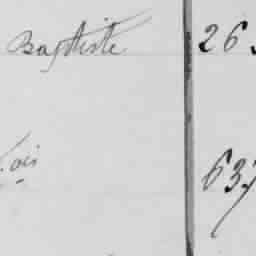 Baptiste 26
çois 637